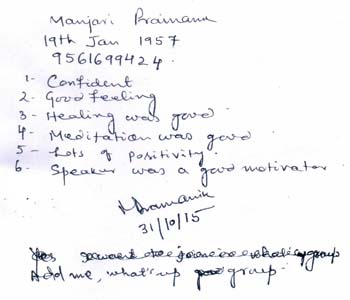 Manjari Pramanik
19th Jan 1957
9561699424.
1- Confident
2- Good feeling
3- Healing was good
4- Meditation was good
5- Lots of positivity.
6- Speaker was a good motivator
Pramanik
31/10/15
Yes group
Add me, what's up group.